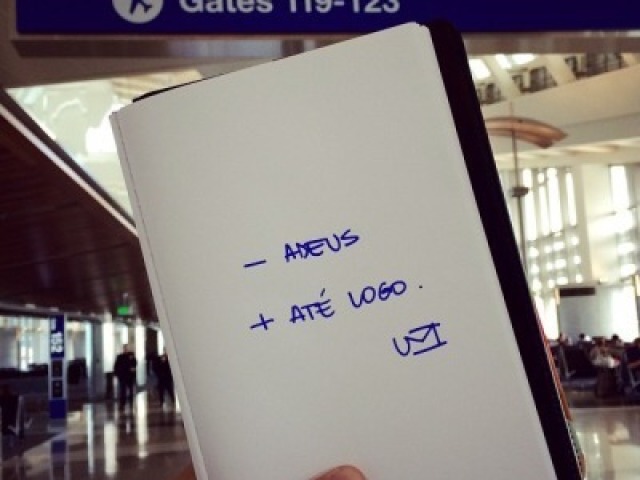 Gates 119-123
- ADEUS
+ ATÉ LOGO.